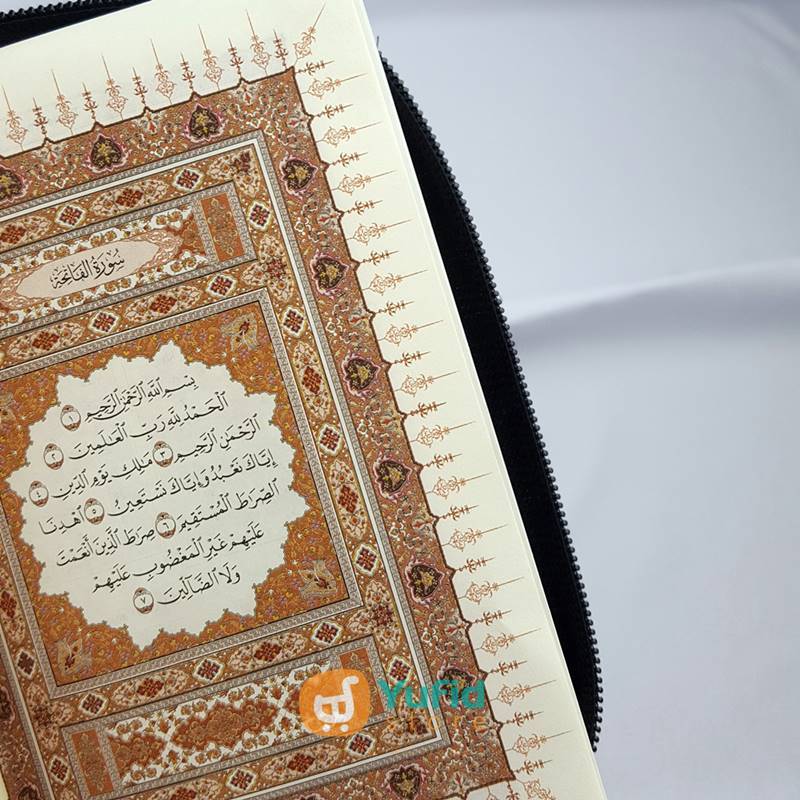 سُورَةُ الفَاتِحَةِ
بِسْمِ ٱللَّهِ ٱلرَّحْمَٰنِ ٱلرَّحِيمِ ١
ٱلْحَمْدُ لِلَّهِ رَبِّ ٱلْعَٰلَمِينَ ٢
ٱلرَّحْمَٰنِ ٱلرَّحِيمِ ٣ مَٰلِكِ يَوْمِ ٱلدِّينِ ٤
إِيَّاكَ نَعْبُدُ وَإِيَّاكَ نَسْتَعِينُ ٥ ٱهْدِنَا
ٱلصِّرَٰطَ ٱلْمُسْتَقِيمَ ٦ صِرَٰطَ ٱلَّذِينَ أَنْعَمْتَ
عَلَيْهِمْ غَيْرِ ٱلْمَغْضُوبِ عَلَيْهِمْ
وَلَا ٱلضَّآلِّينَ ٧
Yufid
STORE